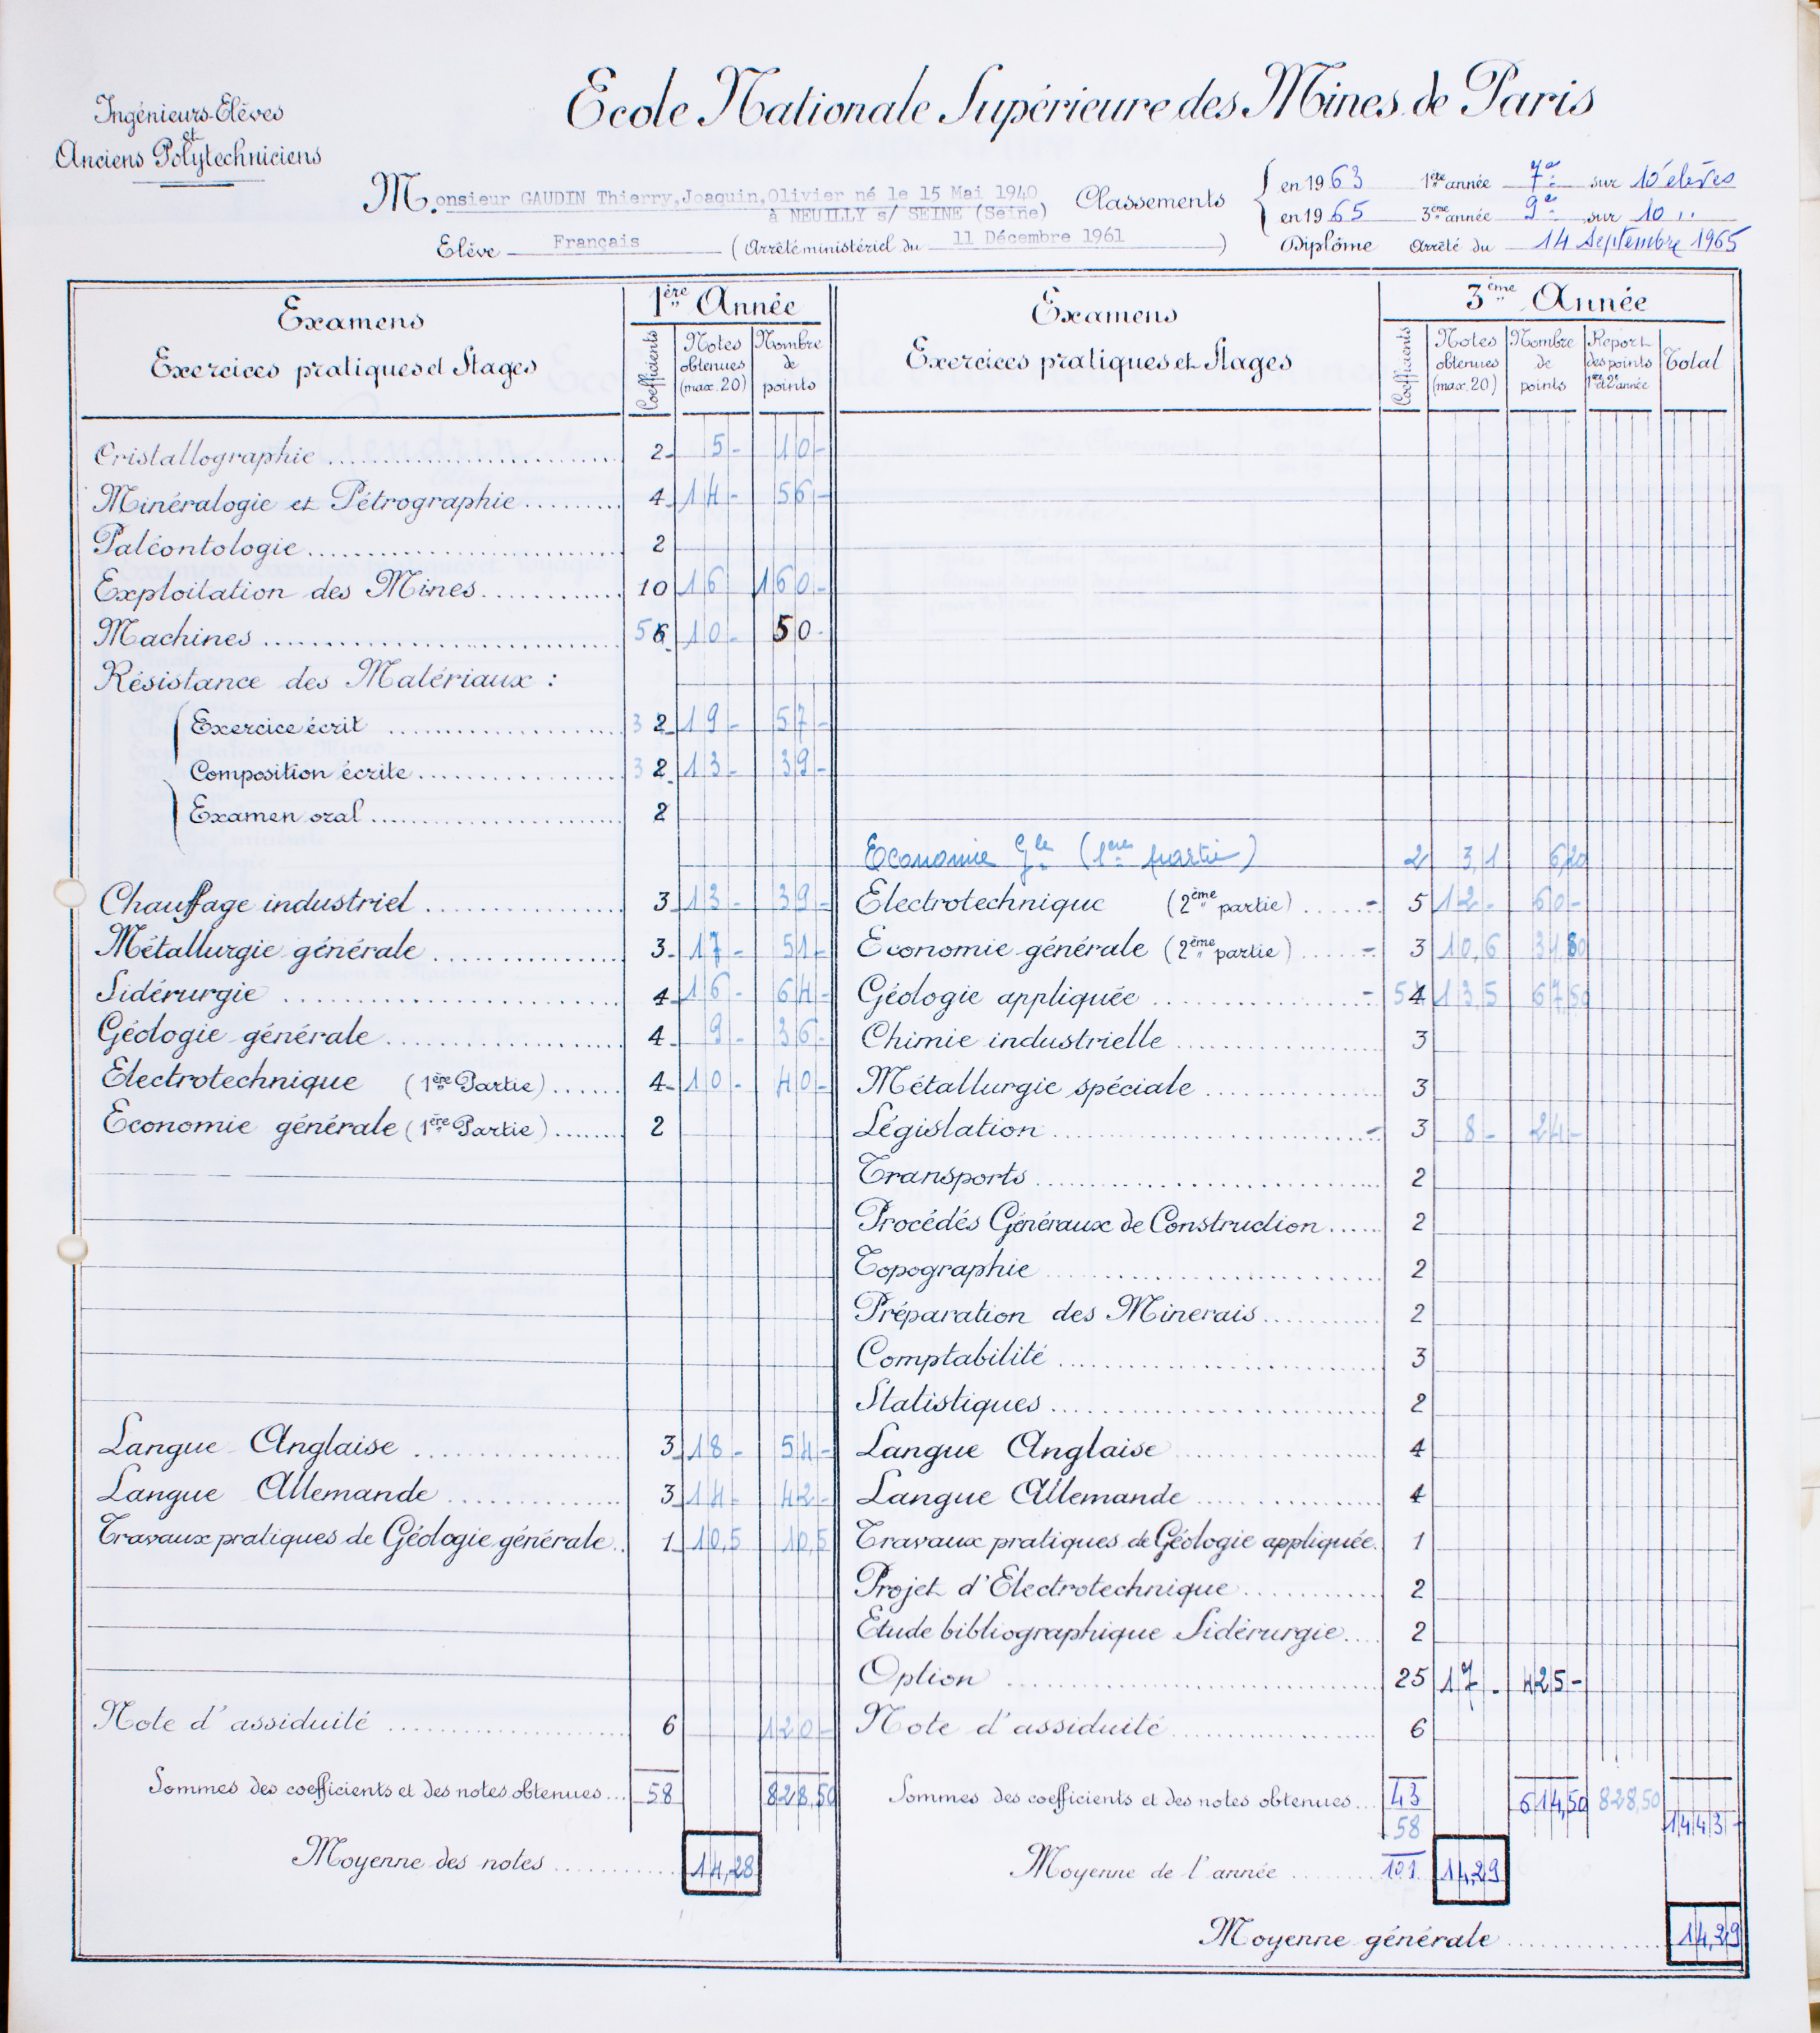 Ecole Nationale Supérieure des Mines de Paris
Ingénieurs-Elèves
et
Anciens Polytechniciens
M.onsieur GAUDIN Thierry,Joaquin,Olivier né le 15 Mai 1940
à NEUILLY s/ SEINE (Seine)
Elève Français (Arrêté ministériel du 11 Décembre 1961)
Classements
en 1963 1ère année 7e sur 10 élèves
en 1965 3ème année 9e sur 10 "
Diplôme Arrêté du 14 Septembre 1965
Examens
Exercices pratiques et Stages
1ère Année
Coefficients
Notes obtenues (max. 20)
Nombre de points
Cristallographie 2 5 - 10 -
Minéralogie et Pétrographie 4 14 - 56 -
Paléontologie 2
Exploitation des Mines 10 16 160 -
Machines 5 6 10 - 50 -
Résistance des Matériaux :
Exercice écrit 3 2 19 - 57 -
Composition écrite 3 2 13 - 39 -
Examen oral 2
Chauffage industriel 3 13 - 39 -
Métallurgie générale 3 17 - 51 -
Sidérurgie 4 16 - 64 -
Géologie générale 4 9 - 36 -
Electrotechnique (1ère Partie) 4 10 - 40 -
Economie générale (1ère Partie) 2
Langue Anglaise 3 18 - 54 -
Langue Allemande 3 14 - 42 -
Travaux pratiques de Géologie générale 1 10,5 10,5
Note d'assiduité 6 120 -
Sommes des coefficients et des notes obtenues 58 828,50
Moyenne des notes 14,28
Examens
Exercices pratiques et Stages
3ème Année
Coefficients
Notes obtenues (max. 20)
Nombre de points
Report des points 1ère et 2e année
Total
Economie Gle (1ère partie) 2 3,1 6,20
Electrotechnique (2ème partie) - 5 12 - 60 -
Economie générale (2ème partie) - 3 10,6 31,80
Géologie appliquée - 5 4 13,5 67,50
Chimie industrielle 3
Métallurgie spéciale 3
Législation - 3 8 - 24 -
Transports 2
Procédés Généraux de Construction 2
Topographie 2
Préparation des Minerais 2
Comptabilité 3
Statistiques 2
Langue Anglaise 4
Langue Allemande 4
Travaux pratiques de Géologie appliquée 1
Projet d'Electrotechnique 2
Etude bibliographique Sidérurgie 2
Option 25 17 - 425 -
Note d'assiduité 6
Sommes des coefficients et des notes obtenues 43 614,50 828,50
58 1443 -
Moyenne de l'année 101 14,29
Moyenne générale 14,29